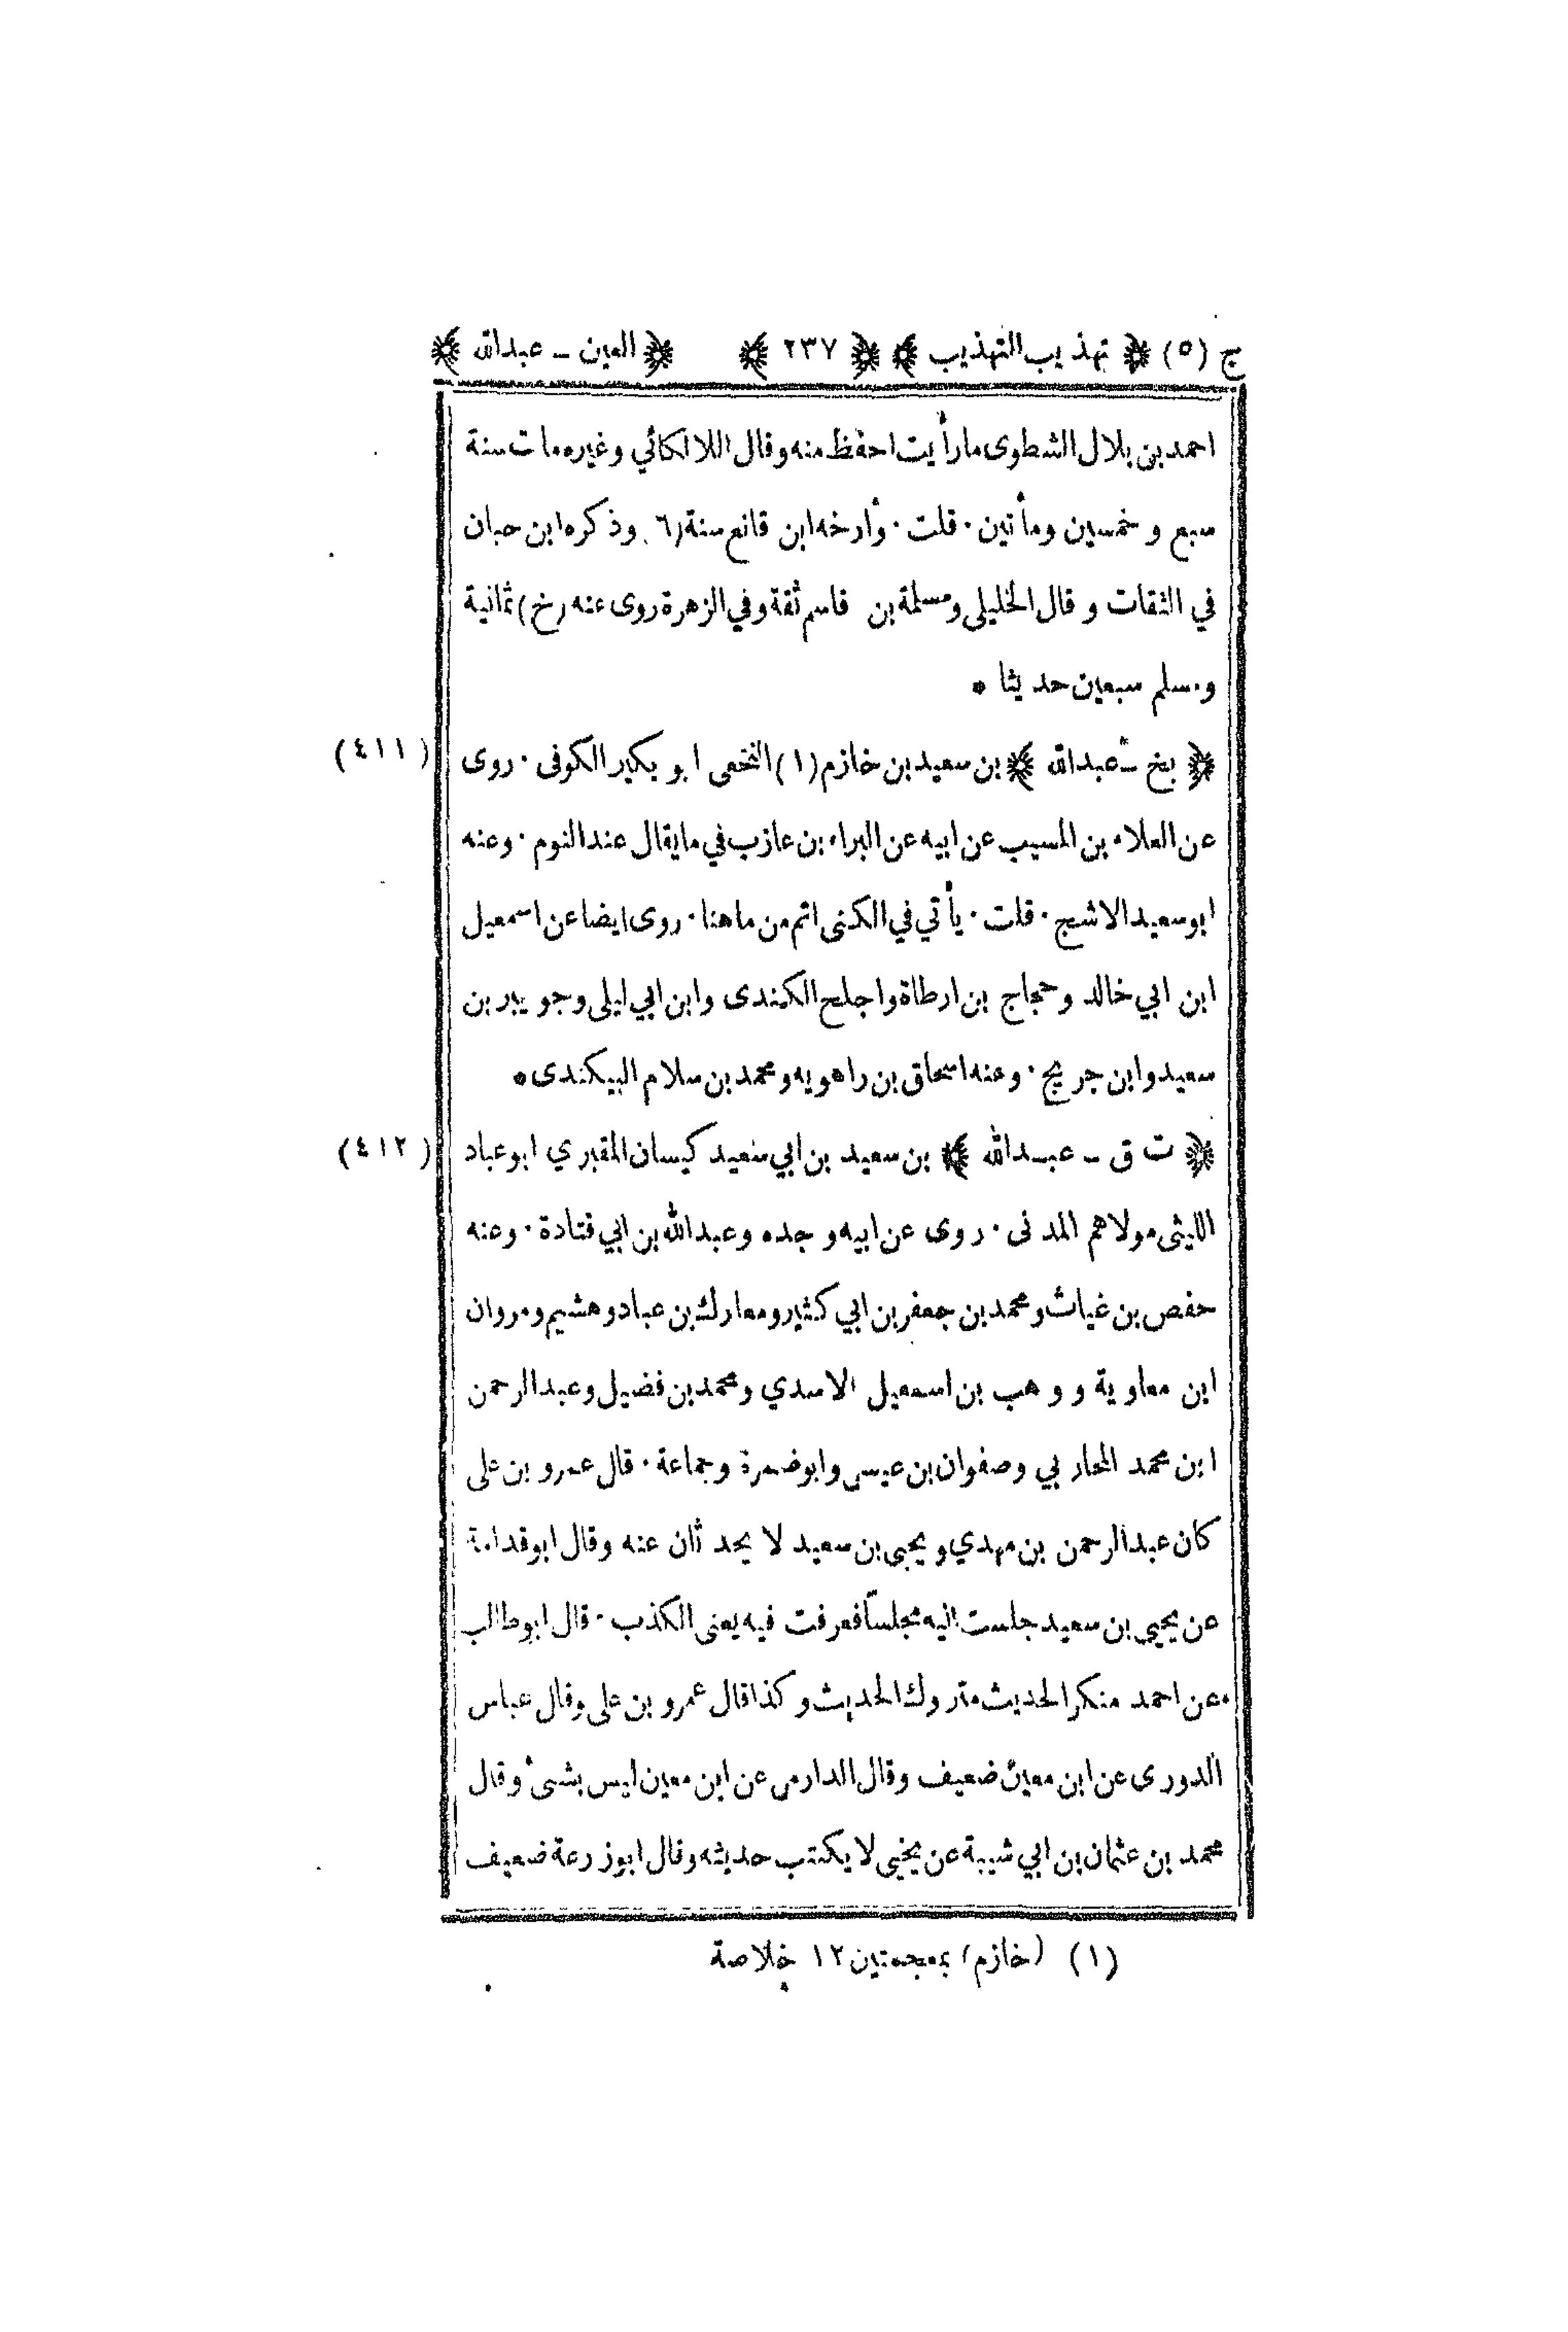 ج (٥) ﴿ تهذيب التهذيب ﴾ ﴿ ٢٣٧ ﴾ ﴿ العين ـ عبدالله ﴾
احمد بن بلال الشطوى ما رأيت احفظ منه وقال اللالكائي وغيره مات سنة
سبع و خمسين ومأتين · قلت · وأرخه ابن قانع سنة (٦) وذكره ابن حبان
في الثقات و قال الخليلى ومسلمة بن قاسم ثقة وفي الزهرة روى عنه (خ) ثمانية
ومسلم سبعين حديثا *
﴿ بخ ـ عبدالله ﴾ بن سعيد بن خازم (١) النخعى ابو بكير الكوفى · روى (٤١١)
عن العلاء بن المسيب عن ابيه عن البراء بن عازب في ما يقال عند النوم · وعنه
ابو سعيد الاشج · قلت · يأتي في الكنى اتم من ما هنا · روى ايضا عن اسمعيل
ابن ابي خالد وحجاج بن ارطاة واجلح الكندى وابن ابي ليلى وجويبر بن
سعيد وابن جريج · وعنه اسحاق بن راهويه ومحمد بن سلام البيكندى *
﴿ ت ق ـ عبدالله ﴾ بن سعيد بن ابي سعيد كيسان المقبري ابو عباد (٤١٢)
الليثى مولاهم المدنى · روى عن ابيه و جده وعبدالله بن ابي قتادة · وعنه
حفص بن غياث ومحمد بن جعفر بن ابي كثير ومعارك بن عباد وهشيم ومروان
ابن معاوية و وهب بن اسمعيل الاسدي ومحمد بن فضيل وعبدالرحمن
ابن محمد المحاربي وصفوان بن عيسى وابو ضمرة وجماعة · قال عمرو بن على
كان عبدالرحمن بن مهدي ويحيى بن سعيد لا يحدثان عنه وقال ابو قدامة
عن يحيى بن سعيد جلست اليه مجلساً فعرفت فيه يعنى الكذب · قال ابو طالب
عن احمد منكر الحديث متروك الحديث وكذا قال عمرو بن على وقال عباس
الدورى عن ابن معين ضعيف وقال الدارمى عن ابن معين ليس بشىء وقال
محمد بن عثمان بن ابي شيبة عن يحيى لا يكتب حديثه وقال ابو زرعة ضعيف
(١) (خازم) بمعجمتين ١٢ خلاصة